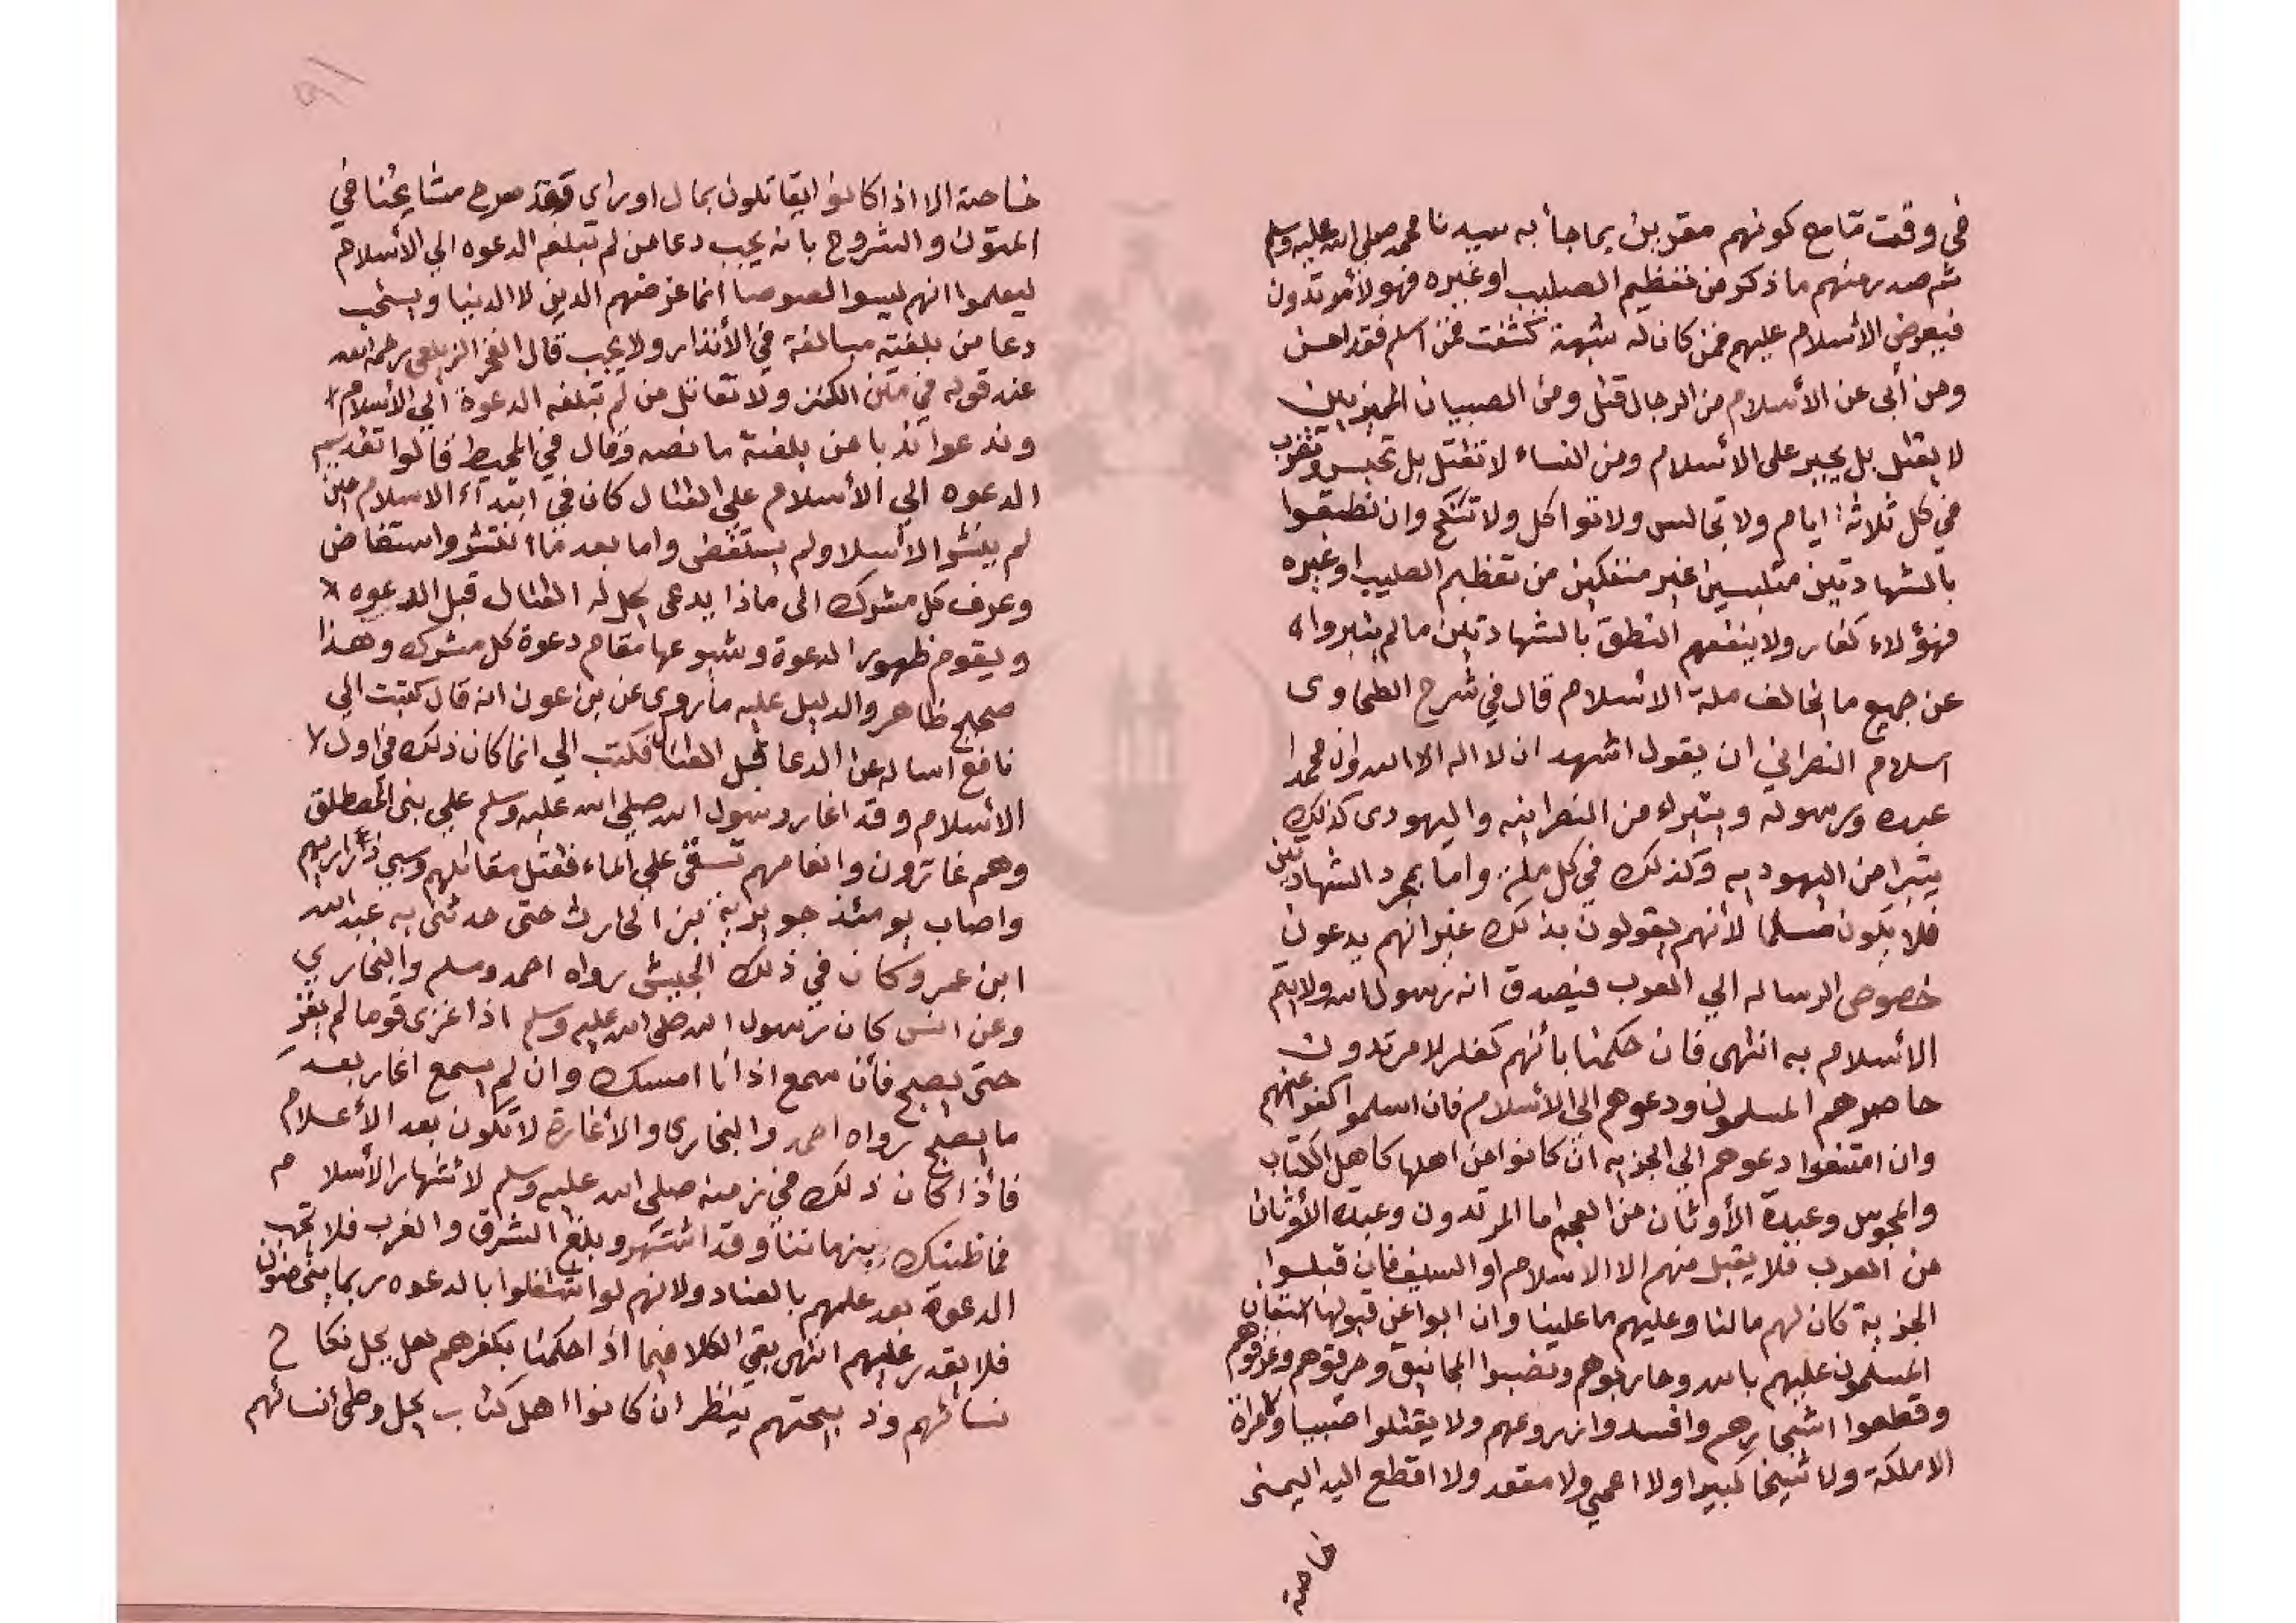 في وقت تامع كونهم مقربين بما جاء به سيدنا محمد صلى الله عليه وسلم
ثم صدر منهم ما ذكر من تعظيم الصليب او غيره فهولاء مرتدون
فيعرض الاسلام عليهم فمن كان له شبهة كشفت فمن اسلم فقد احسن
ومن أبى عن الأسلام من الرجال قتل ومن الصبيان المميزين
لا يقتل بل يجبر على الاسلام ومن النساء لا تقتل بل تحبس وتضرب
في كل ثلاثة ايام ولا تجالس ولا تواكل ولا تنكح وان نطقوا
بالشهادتين متلبسين غير منفكين من تعظيم الصليب او غيره
فهؤلاء كفار ولا ينفعهم النطق بالشهادتين ما لم يتبروا
عن جميع ما يخالف ملة الاسلام قال في شرح الطحاوى
اسلام النصراني ان يقول اشهد ان لا اله الا الله وان محمدا
عبده ورسوله ويتبراء من النصرانيه واليهودى كذلك
يتبرا من اليهوديه وكذلك في كل ملة واما بمجرد الشهادتين
فلا يكون مسلما لأنهم يقولون بذلك غير انهم يدعون
خصوص الرساله الي العرب فيصدق انه رسول الله ولا يتم
الاسلام به انتهى فان حكمنا بأنهم كفار لا مرتدون
حاصرهم المسلمون ودعوهم الى الأسلام فان اسلموا كفوا عنهم
وان امتنعوا دعوهم الي الجزيه ان كانوا من اهلها كاهل الكتاب
والمجوس وعبدة الأوثان من العجم اما المرتدون وعبدة الأوثان
من العرب فلا يقبل منهم الا الاسلام او السيف فان قبلوا
الجزية كان لهم مالنا وعليهم ما علينا وان ابوا عن قبولها استعان
المسلمون عليهم بالله وحاربوهم ونصبوا المجانيق وحرقوهم وغرقوهم
وقطعوا اشجارهم وافسدوا زروعهم ولا يقتلوا صبيا ولا امراة
الا ملكة ولا شيخا كبيرا ولا اعمي ولا مقعد ولا اقطع اليد اليمنى
خاصة
خاصة الا اذا كانوا يقاتلون بمال او راي وقد صرح مشايخنا في
المتون والشروح بانه يجب دعا من لم تبلغه الدعوه الي الأسلام
ليعلموا انهم ليسوا لصوصا انما غرضهم الدين لا الدنيا ويستحب
دعا من بلغته مبالغة في الأنذار ولا يجب قال الفخر الزيلعي رحمه الله
عند قوله في متن الكنز ولا نقاتل من لم تبلغه الدعوة الي الاسلام
وندعوا ندبا من بلغته ما نصه وقال في المحيط قالوا تقديم
الدعوه الي الأسلام على القتال كان في ابتداء الاسلام حين
لم ينتشر الأسلام ولم يستفض واما بعد ما انتشر واستفاض
وعرف كل مشرك الى ماذا يدعى يحل له القتال قبل الدعوه
ويقوم ظهور الدعوة وشيوعها مقام دعوة كل مشرك وهذا
صحيح ظاهر والدليل عليه ما روى عن بن عون انه قال كتبت الي
نافع اساله عن الدعا قبل القتال فكتب الي انما كان ذلك في اول
الأسلام وقد اغار رسول الله صلي الله عليه وسلم علي بنى المصطلق
وهم غازون وانعامهم تسقى علي الماء فقتل مقاتلهم وسبى ذراريهم
واصاب يومئذ جويرية بنت الحارث حتى حدثنى به عبد الله
ابن عمر وكان في ذلك الجيش رواه احمد ومسلم والبخاري
وعن انس كان رسول الله صلى الله عليه وسلم اذا غزى قوما لم يغز
حتى يصبح فأن سمع اذانا امسك وان لم يسمع اغار بعد
ما يصبح رواه احمد والبخارى والأغارة لا تكون بعد الأعلام
فأذا كان ذلك في زمنه صلى الله عليه وسلم لاشتهار الأسلام
فما ظنك بزماننا وقد اشتهر وبلغ الشرق والغرب فلا تجب
الدعوة بعد علمهم بالعناد ولانهم لو اشتغلوا بالدعوه ربما يتحصنون
فلا يقدر عليهم انتهى بقي الكلام فيما اذا حكمنا بكفرهم هل يحل نكاح
نسائهم وذبيحتهم ينظر ان كانوا اهل كتاب يحل وطئ نسائهم